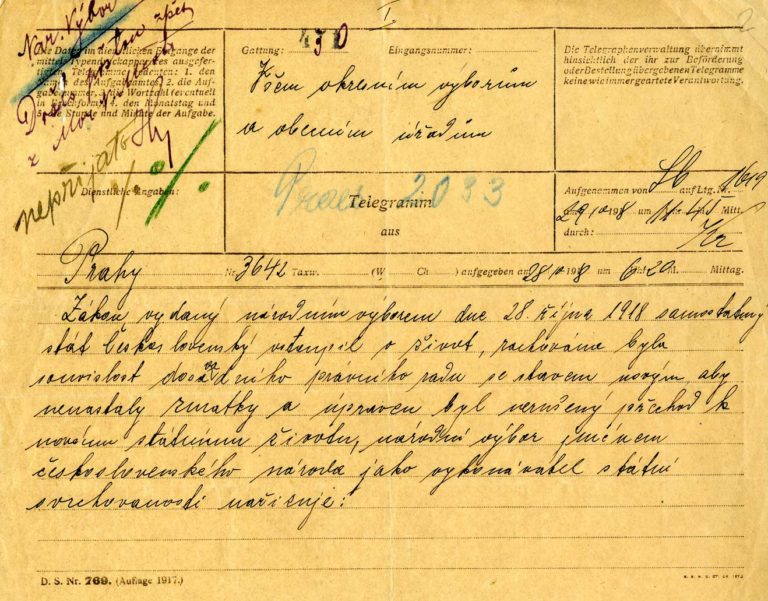 I.
2
Nár. Výbor
zpět
nepřijato
Die Daten im dienstlichen Eingange der
mittels Typendruckapparates ausgefer-
tigten Telegramme bedeuten: 1. den
Namen des Aufgabeamtes 2. die Auf-
gabenummer, 3. die Wortzahl (eventuell
in Bruchform) 4. den Monatstag und
5. die Stunde und Minute der Aufgabe.
Gattung: Eingangsnummer:
Všem okresním výborům
a obecním úřadům
Die Telegraphenverwaltung übernimmt
hinsichtlich der ihr zur Beförderung
oder Bestellung übergebenen Telegramme
keine wie immer geartete Verantwortung.
Dienstliche Angaben:
2033
Telegramm
aus
Aufgenommen von auf Ltg. Nr. 1619
am 29/10 1918 um 11 45 Mitt.
durch:
Prahy Nr. 3642 Taxw. (W Ch ) aufgegeben am 28/10 1918 um 6 Uhr 20 M. Mittag.
Zákon vydaný národním výborem dne 28. října 1918 samostatný
stát Československý vstoupil v život, zachována byla
souvislost dosavadního právního řadu se stavem novým, aby
nenastaly zmatky a upraven byl nerušený přechod k
novému státnímu životu, národní výbor jménem
československého národa jako vykonávatel státní
svrchovanosti nařizuje:
D. S. Nr. 769. (Auflage 1917.)